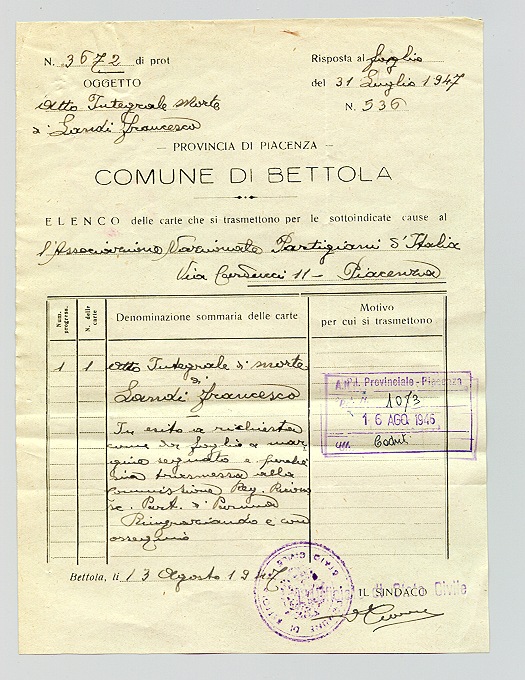 N. 3672 di prot
Risposta al foglio
OGGETTO
del 31 Luglio 1947
Atto Integrale morte
N. 536
di Landi Francesco
— PROVINCIA DI PIACENZA —
COMUNE DI BETTOLA
ELENCO delle carte che si trasmettono per le sottoindicate cause al
l'Associazione Nazionale Partigiani d'Italia
Via Carducci 11 - Piacenza
Num. progress.
N. delle carte
Denominazione sommaria delle carte
Motivo
per cui si trasmettono
1 1 Atto Integrale di morte
di
Landi Francesco
In esito a richiesta
come da foglio a mar
gine segnato e perchè
sia trasmessa alla
commissione Reg. Ricono
sc. Part. di Parma
Ringraziando e con
ossequio
A.N.P.I. Provinciale - Piacenza
1073
16 AGO. 1946
Caduti
Bettola, li 13 Agosto 1947
IL SINDACO
di Stato Civile